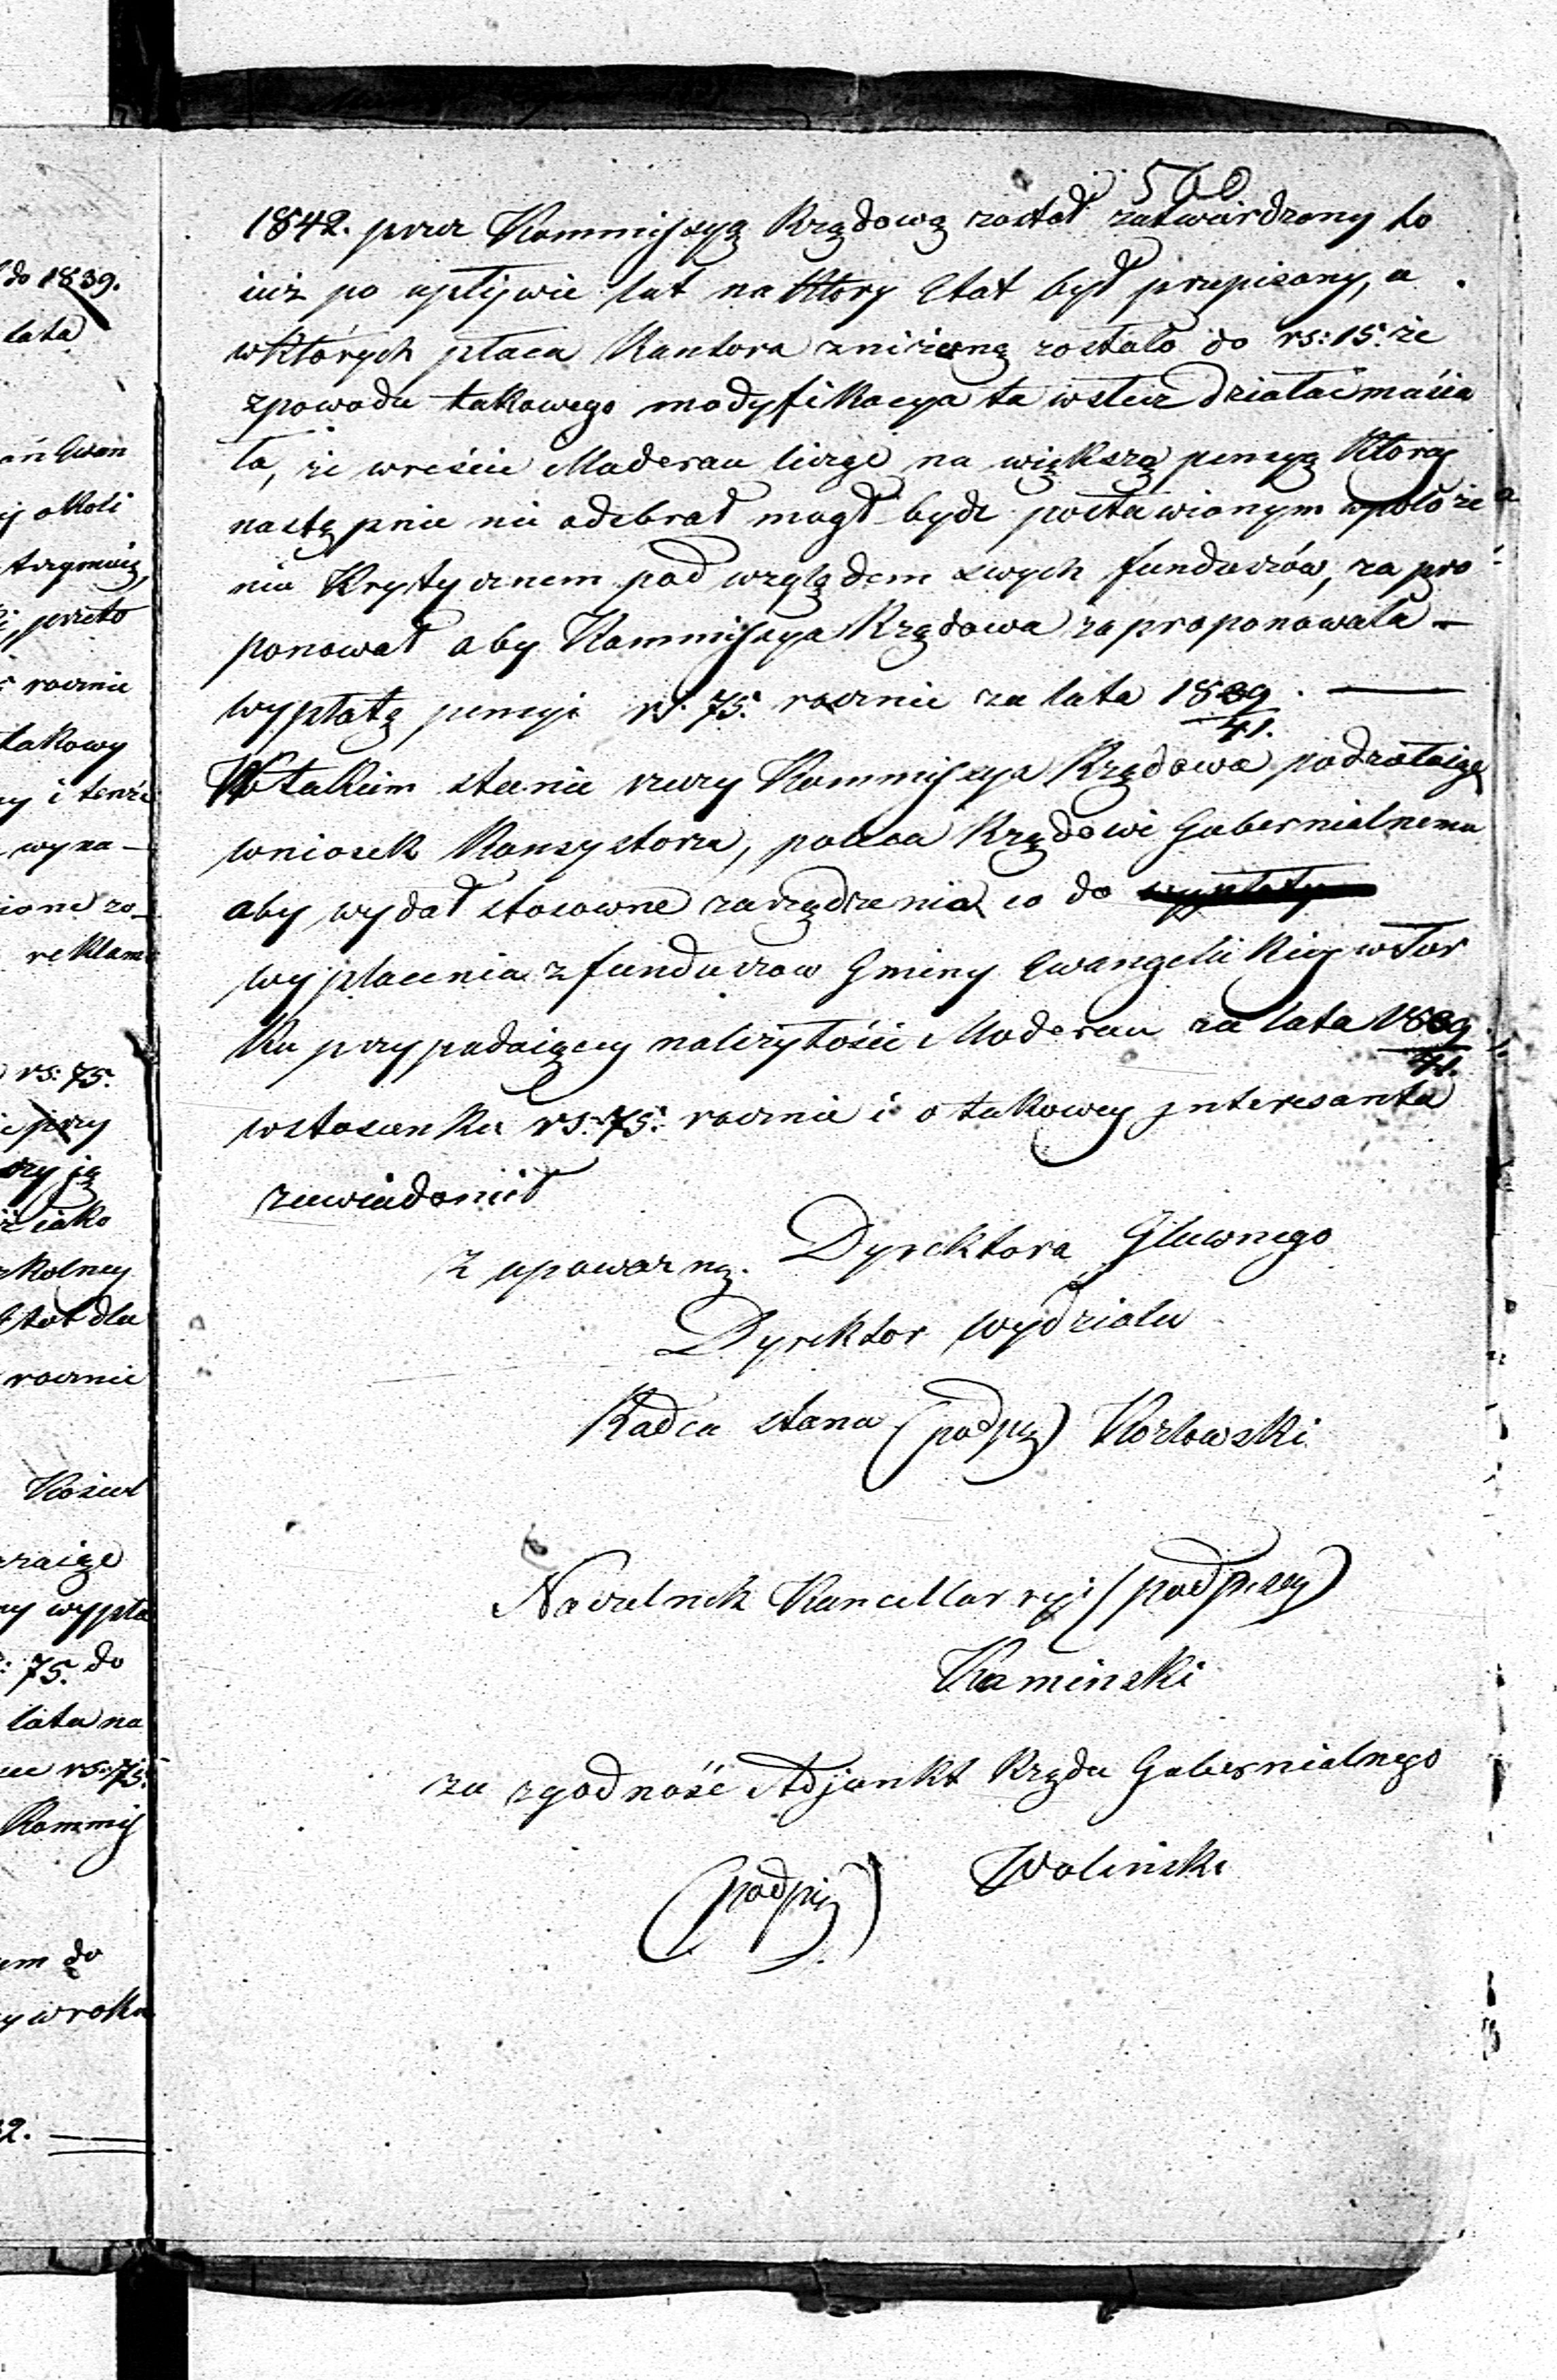 do 1839.
lata
okoli
preto
rocznie
takowy
y i tenże
wyna-
ione zo-
reklam
rs: 75.
przy
ry ją
iako
zkolney
Etat dla
rocznie
Kościel
raiąc
ny wypła
: 75. do
lata na
rs: 75.
Kommis
em do
y w roku
2.
560
1842. przez Kommissyą Rządową został zatwierdzony to
iuż po upływie lat na który Etat był przepisany, a
w których płaca Kantora zniżoną zostało do rs: 15. że
z powodu takowego modyfikacya ta wstecz działać musia
ła, że wreście Maderau licząc na większą pensyą którey
następnie nie odebrał mógł bydź postawionym w położe
niu krytycznem pod względem swych funduszów, zapro
ponował aby Kommissya Rządowa zaproponowała —
wypłatę pensyi rs. 75. rocznie za lata 1839/41. —
W takim stanie rzeczy Kommissya Rządowa podzielaiąc
wniosek Konsystorza, poleca Rządowi Gubernialnemu
aby wydał stosowne zarządzenia co do wypłaty
wypłacenia z funduszow Gminy Ewangelickiey w Tur
ku przypadaiącey należytości Maderau za lata 1839/41.
w stosunku rs: 75: rocznie i o takowey interesanta
zawiadomił
z upoważn. Dyrektora Głównego
Dyrektor Wydziału
Radca Stanu (podp) Kozłowski
Naczelnik Kancellaryi (podpisany)
Kaminski
za zgodność Adjunkt Rządu Gubernialnego
(podpis) Woliński